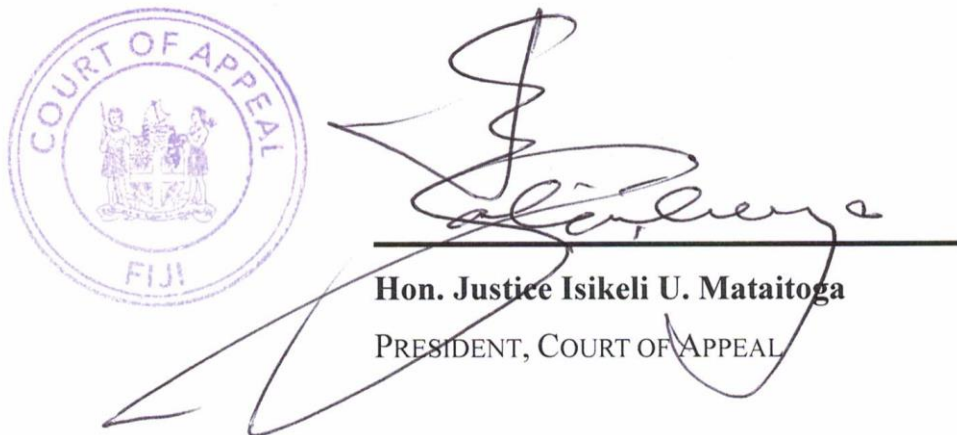 COURT OF APPEAL
FIJI
Hon. Justice Isikeli U. Mataitoga
PRESIDENT, COURT OF APPEAL